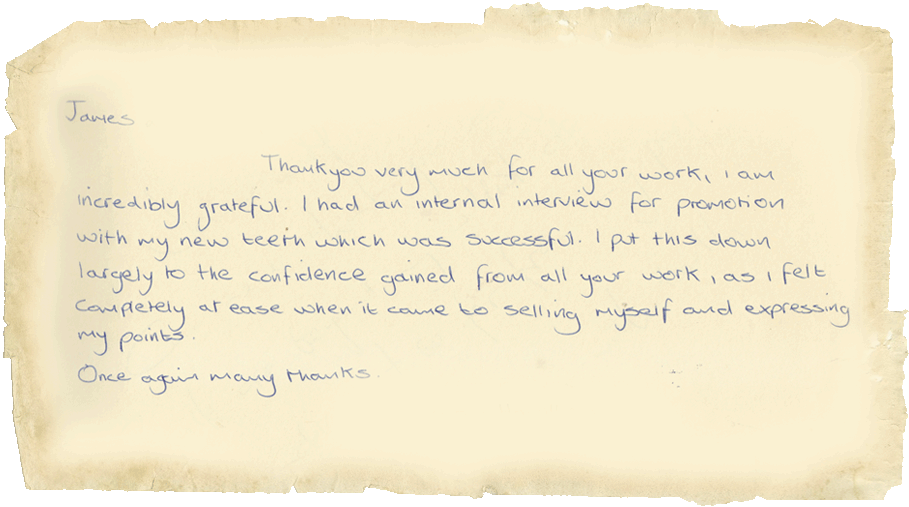 James
Thankyou very much for all your work, i am
incredibly grateful. I had an internal interview for promotion
with my new teeth which was successful. I put this down
largely to the confidence gained from all your work, as i felt
completely at ease when it came to selling myself and expressing
my points.
Once again many thanks.